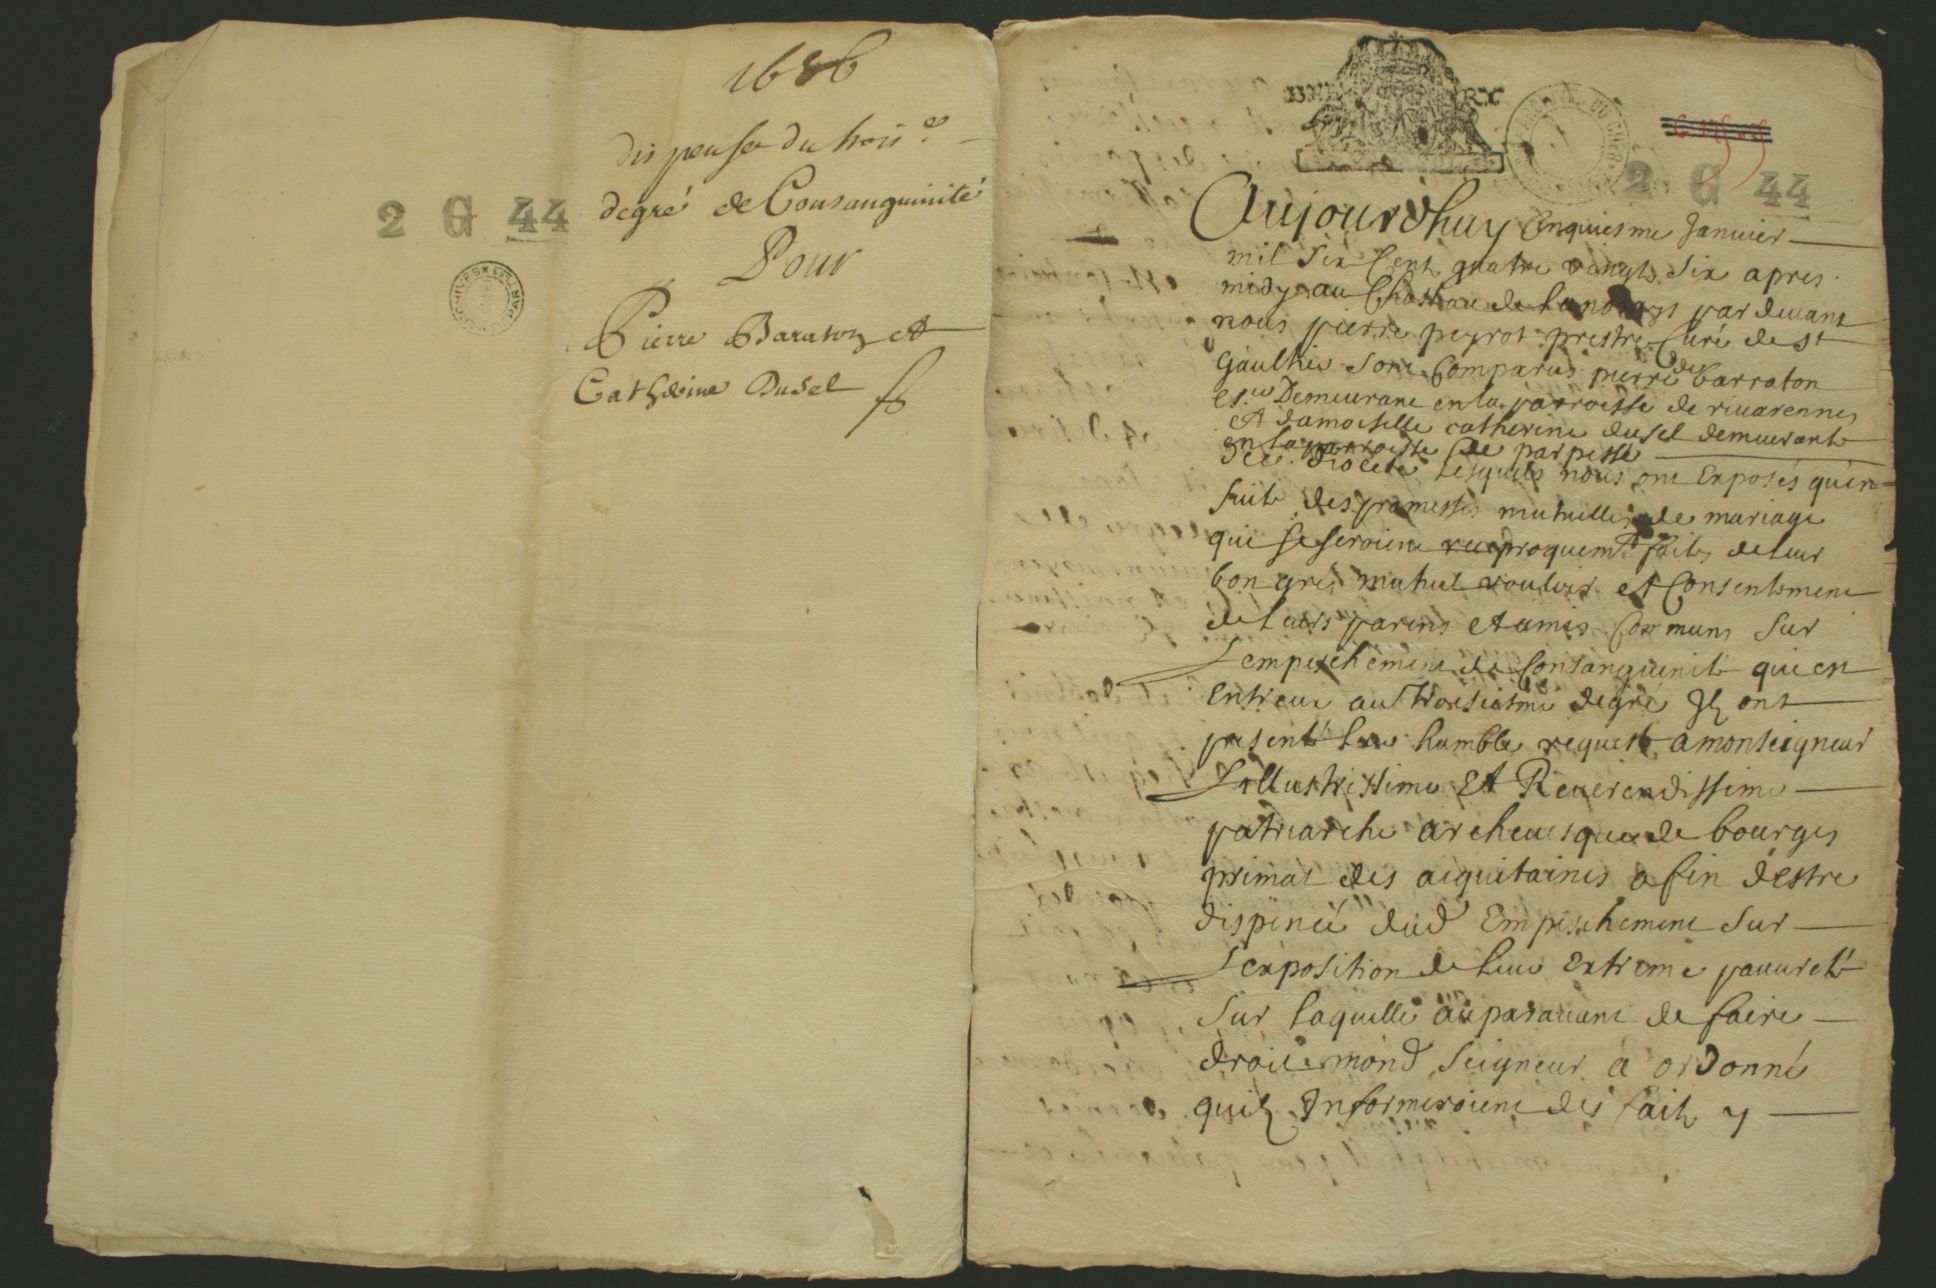 1686
dispense du trois.e
degré de Consanguinité
2 G 44
Pour
Pierre Baraton et
Catherine Dusel
2 G 44
Aujourdhuy Cinquiesme Janvier
mil six Cent quatre vingts six apres
midy au Chasteau de pardevant
nous pierre peyrot prestre Curé de st
Gaultier sont Comparus pierre de barraton
es.er Demeurant en la parroisse de rivarennes
et damoiselle catherine dusel demeurante
en la parroisse de
diocese lesquels nous ont Exposés qu'en
suite des promesses mutuelles de mariage
qui se seroient reciproquemt faites de leur
bon gré mutuel vouloir et Consentement
de leurs parens et amis Communs sur
l'empeschement de Consanguinité qui est
Entreux au troisiesme degré Ilz ont
presenté leur humble requeste a monseigneur
L'illustrissime et Reverendissime
patriarche archevesque de bourges
primat des aiquitaines afin d'estre
dispencé dud Empeschement sur
l'exposition de leur extreme pauvreté
sur laquelle auparavant de faire
droit mond Seigneur a ordonné
quilz Informeroient des faits y